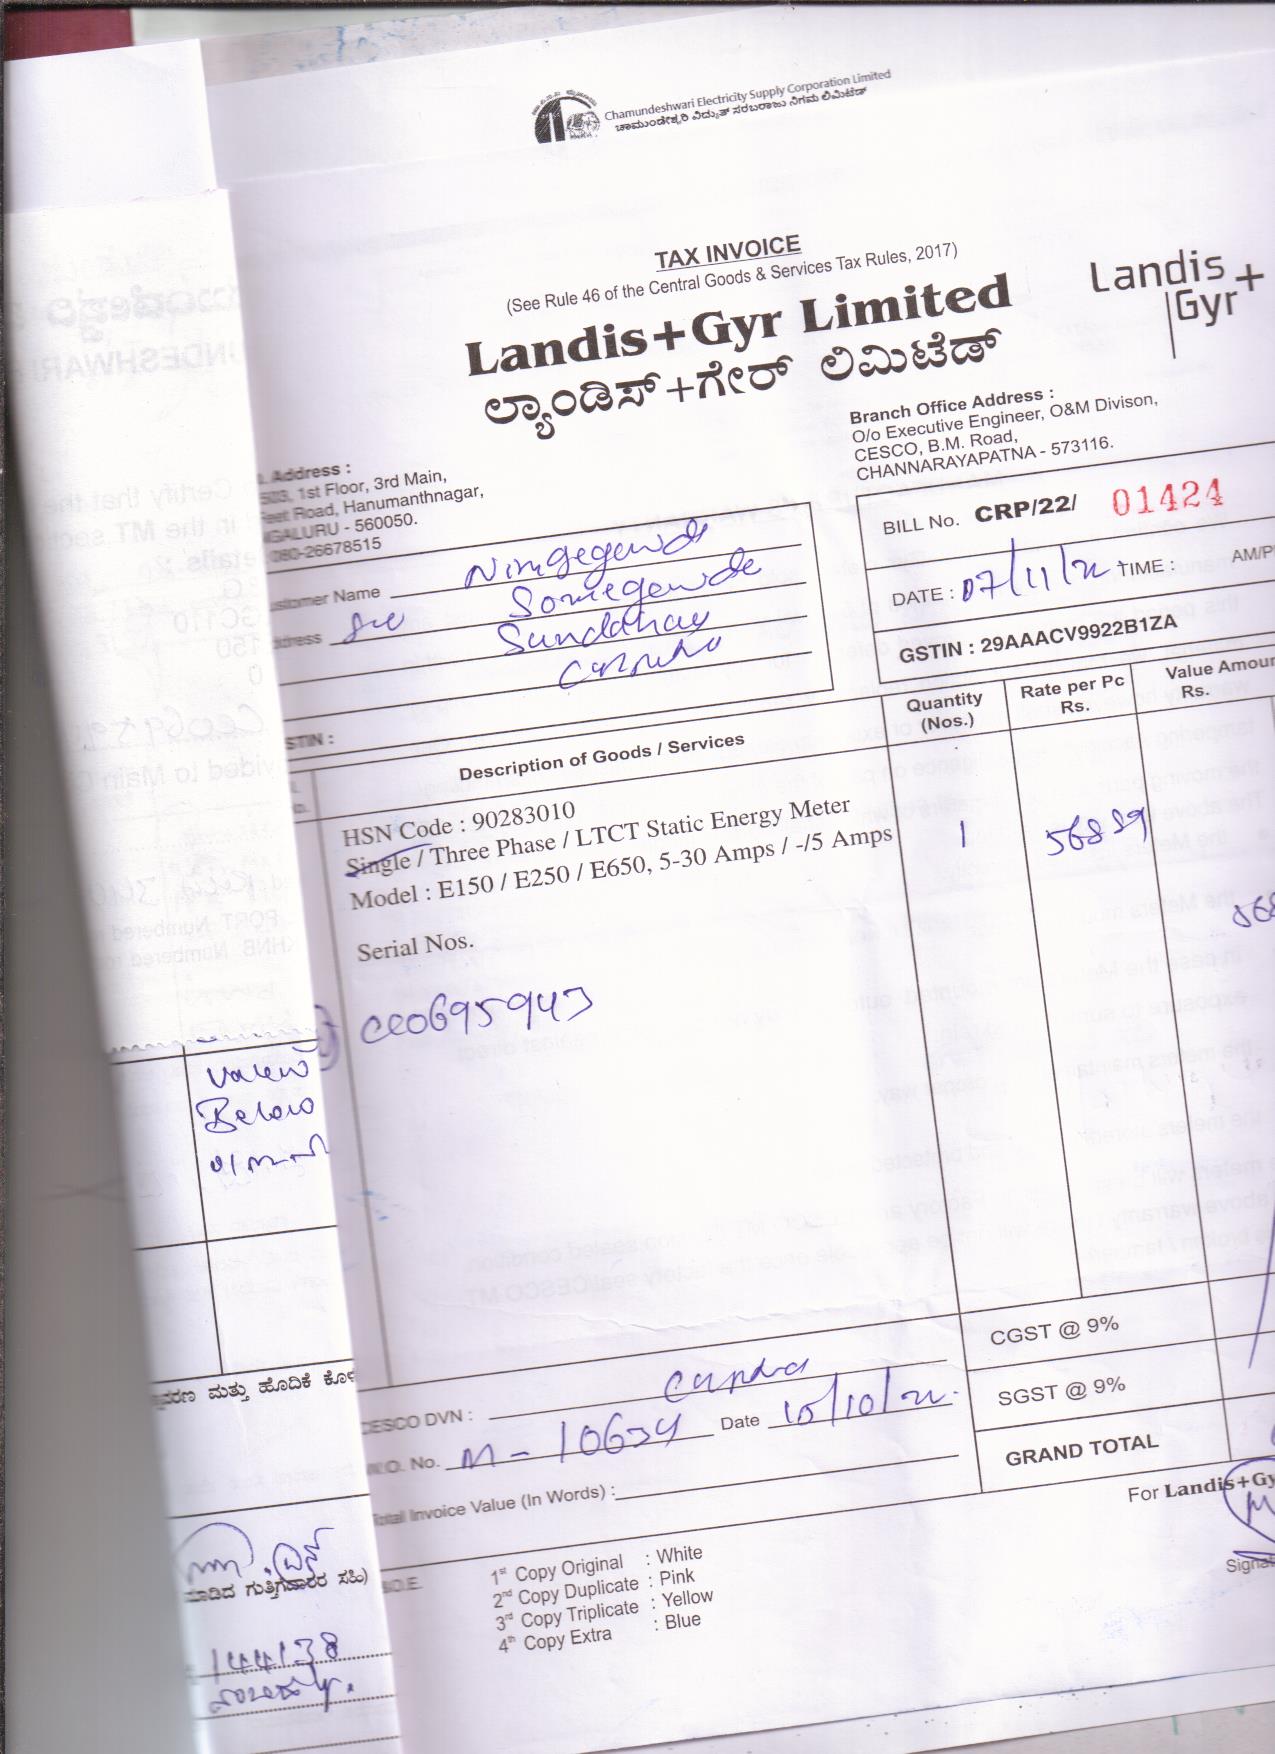 Chamundeshwari Electricity Supply Corporation Limited
ಚಾಮುಂಡೇಶ್ವರಿ ವಿದ್ಯುತ್ ಸರಬರಾಜು ನಿಗಮ ಲಿಮಿಟೆಡ್
TAX INVOICE
(See Rule 46 of the Central Goods & Services Tax Rules, 2017)
Landis+Gyr Limited
ಲ್ಯಾಂಡಿಸ್+ಗೇರ್ ಲಿಮಿಟೆಡ್
Landis
Gyr+
Address :
503, 1st Floor, 3rd Main,
Feet Road, Hanumanthnagar,
NGALURU - 560050.
080-26678515
Branch Office Address :
O/o Executive Engineer, O&M Divison,
CESCO, B.M. Road,
CHANNARAYAPATNA - 573116.
BILL No. CRP/22/ 01424
DATE : 07/11/22 TIME : AM/P
GSTIN : 29AAACV9922B1ZA
ustomer Name Ningegowda
ddress S/o Somegowda
STIN :
Description of Goods / Services
Quantity (Nos.)
Rate per Pc Rs.
Value Amoun Rs.
HSN Code : 90283010
Single / Three Phase / LTCT Static Energy Meter
Model : E150 / E250 / E650, 5-30 Amps / -/5 Amps
1
568.89
568
Serial Nos.
CC0695943
Below
CGST @ 9%
SGST @ 9%
GRAND TOTAL
CESCO DVN :
W.O. No. M-10634 Date 10/10/22
Total Invoice Value (In Words) :
For Landis+Gy
Signat
1st Copy Original : White
2nd Copy Duplicate : Pink
3rd Copy Triplicate : Yellow
4th Copy Extra : Blue
ಮತ್ತು ಹೊದಿಕೆ
ಮಾಡಿದ ಗುತ್ತಿಗೆದಾರರ ಸಹಿ)
144138